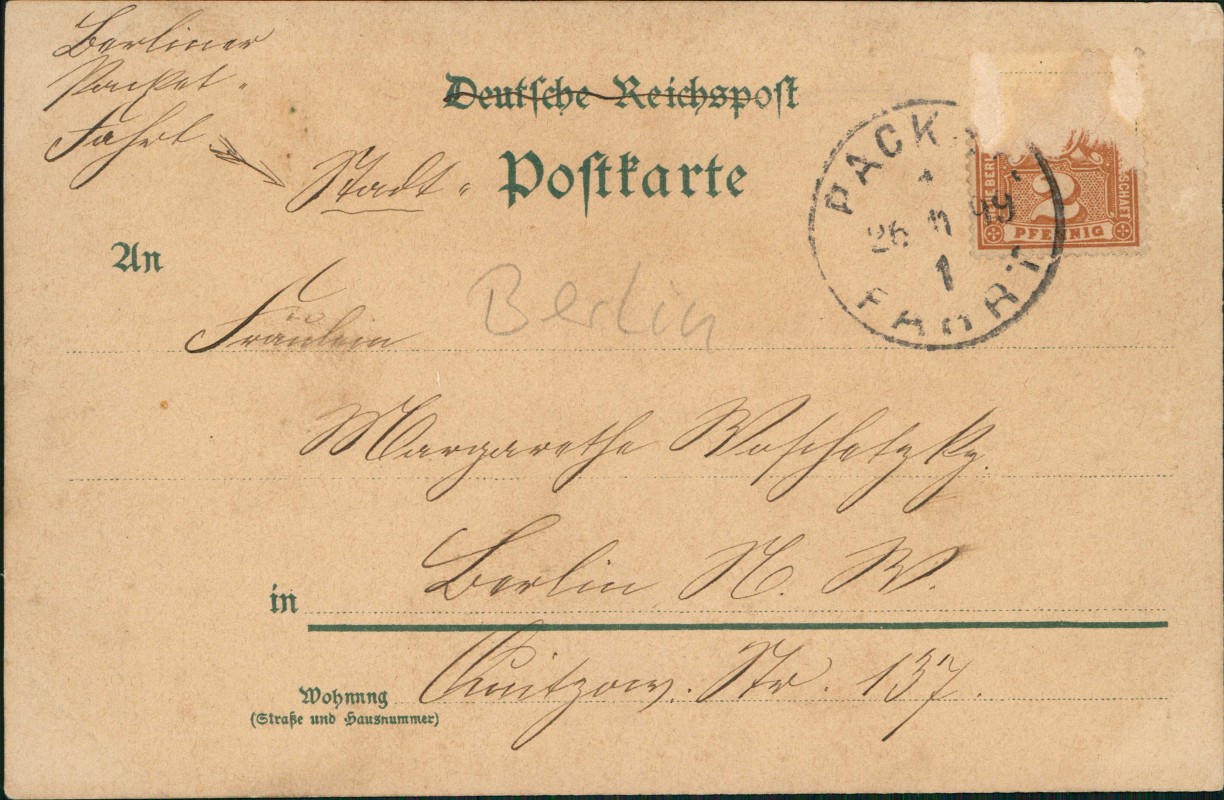 Berliner
Packet-
Fahrt
Deutsche Reichspost
Stadt- Postkarte
PACK
1
26 11 99
1
FAHRT
2
PFENNIG
An
Berlin
Fräulein
Margarethe Woschetzky.
in Berlin N. W.
Wohnung Quitzow. Str. 137.
(Straße und Hausnummer)